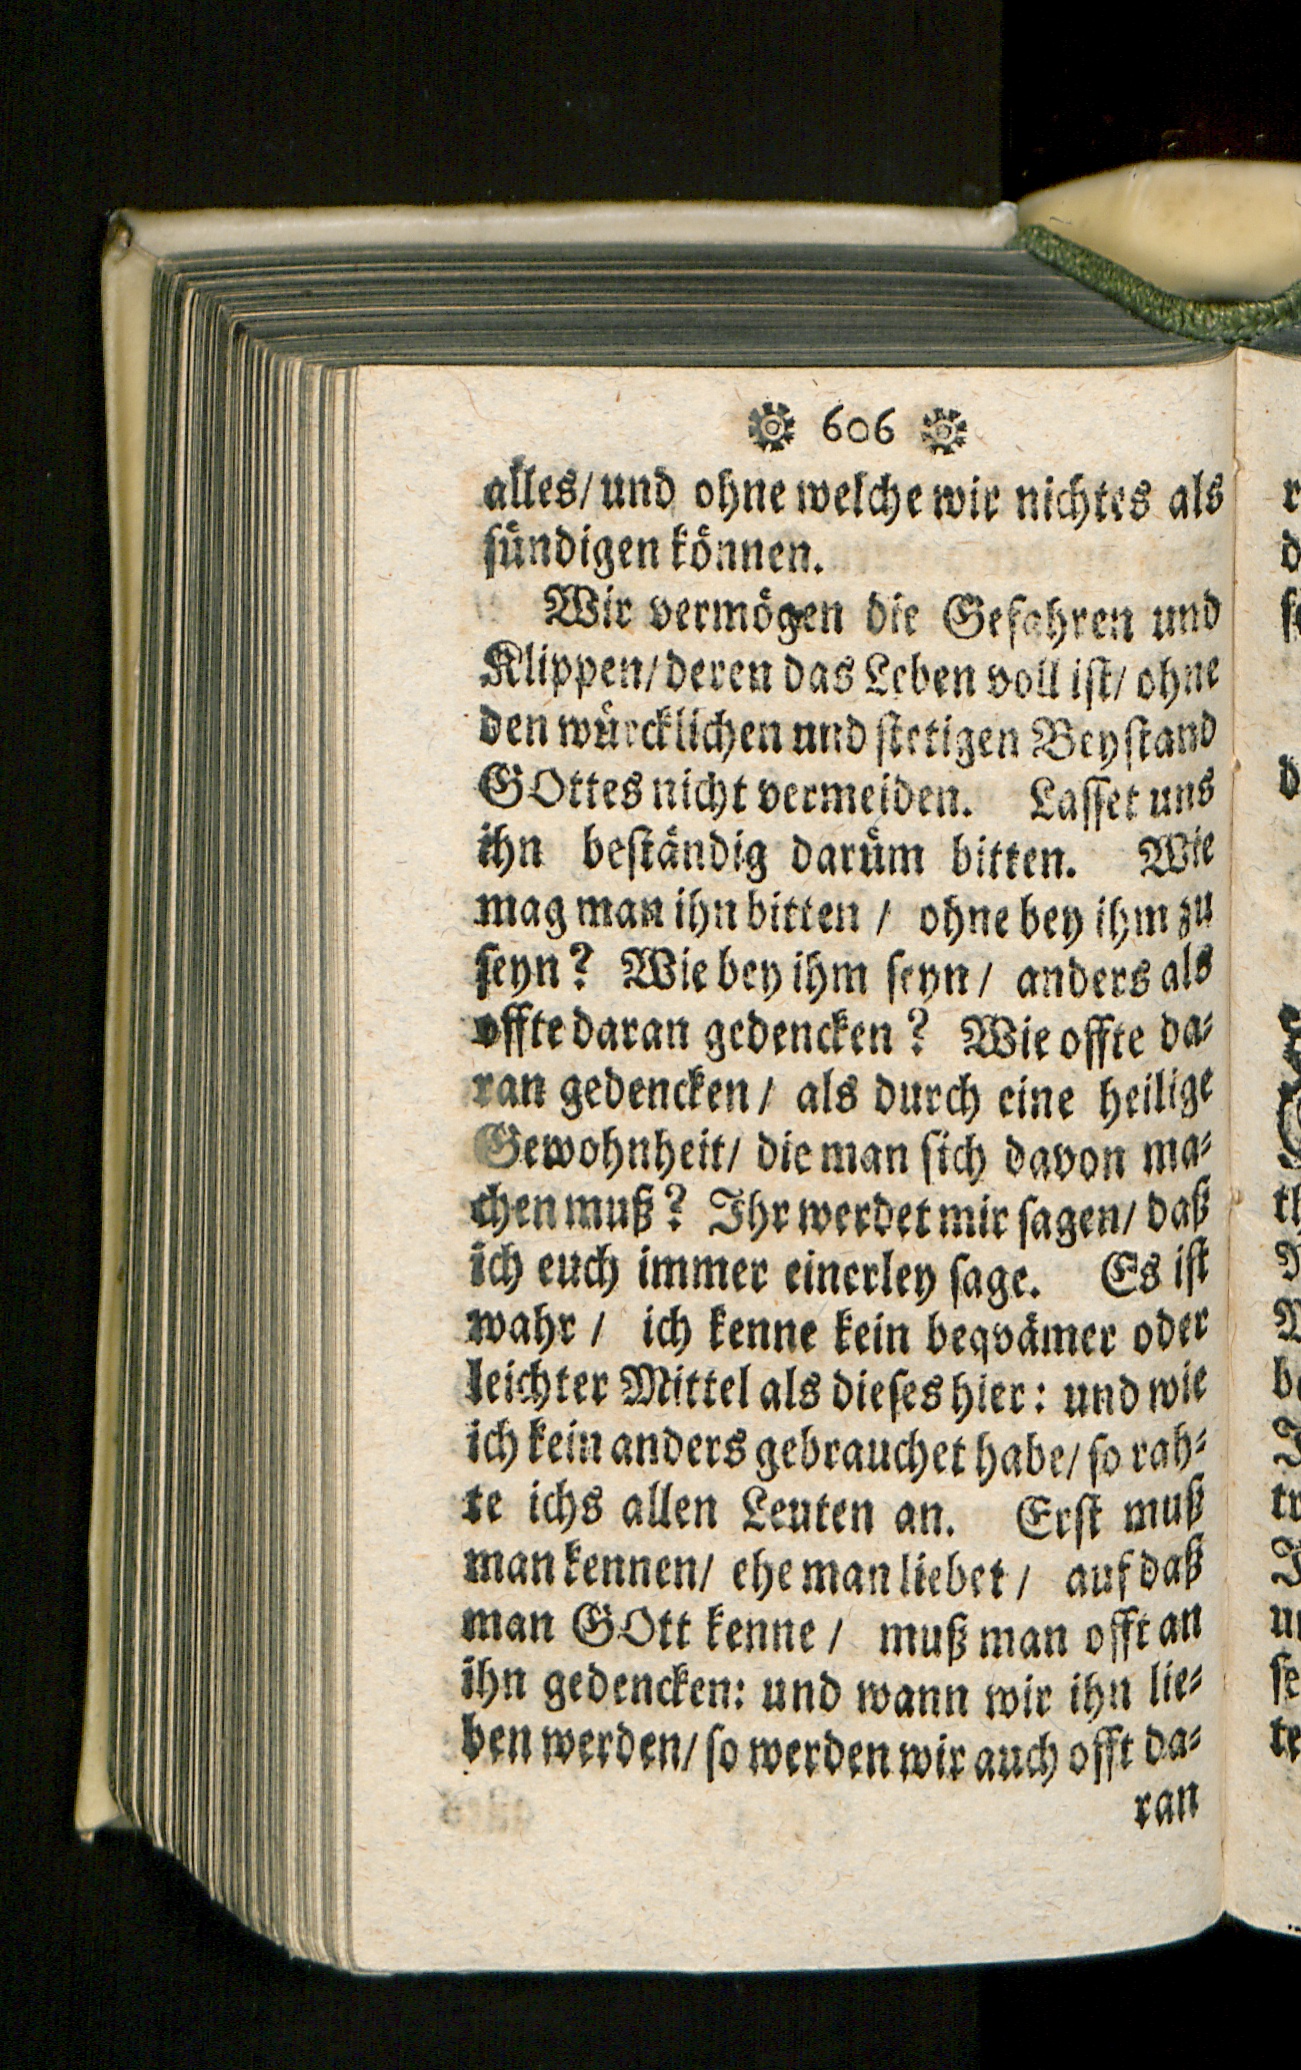 606
alles/ und ohne welche wir nichtes als
sündigen können.
Wir vermögen die Gefahren und
Klippen/ deren das Leben voll ist/ ohne
den würcklichen und stetigen Beystand
GOttes nicht vermeiden. Lasset uns
ihn beständig darüm bitten. Wie
mag man ihn bitten / ohne bey ihm zu
seyn? Wie bey ihm seyn/ anders als
offte daran gedencken? Wie offte da-
ran gedencken/ als durch eine heilige
Gewohnheit/ die man sich davon ma-
chen muß? Ihr werdet mir sagen/ daß
ich euch immer einerley sage. Es ist
wahr / ich kenne kein beqvämer oder
leichter Mittel als dieses hier: und wie
ich kein anders gebrauchet habe/ so rah-
te ichs allen Leuten an. Erst muß
man kennen/ ehe man liebet / auf daß
man GOtt kenne / muß man offt an
ihn gedencken: und wann wir ihn lie-
ben werden/ so werden wir auch offt da-
ran